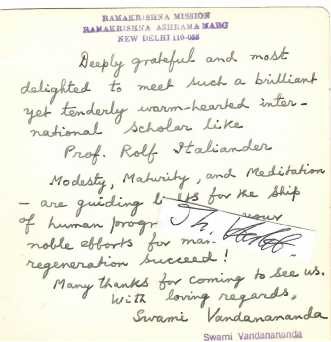 RAMAKRISHNA MISSION
RAMAKRISHNA ASHRAMA MARG
NEW DELHI 110-055
Deeply grateful and most
delighted to meet such a brilliant
yet tenderly warm-hearted inter-
national scholar like
Prof. Rolf Italiander
Modesty, Maturity, and Meditation
- are guiding for the Ship
of human your
noble efforts for
regeneration succeed!
Many thanks for coming to see us.
With loving regards,
Swami Vandanananda
Swami Vandanananda